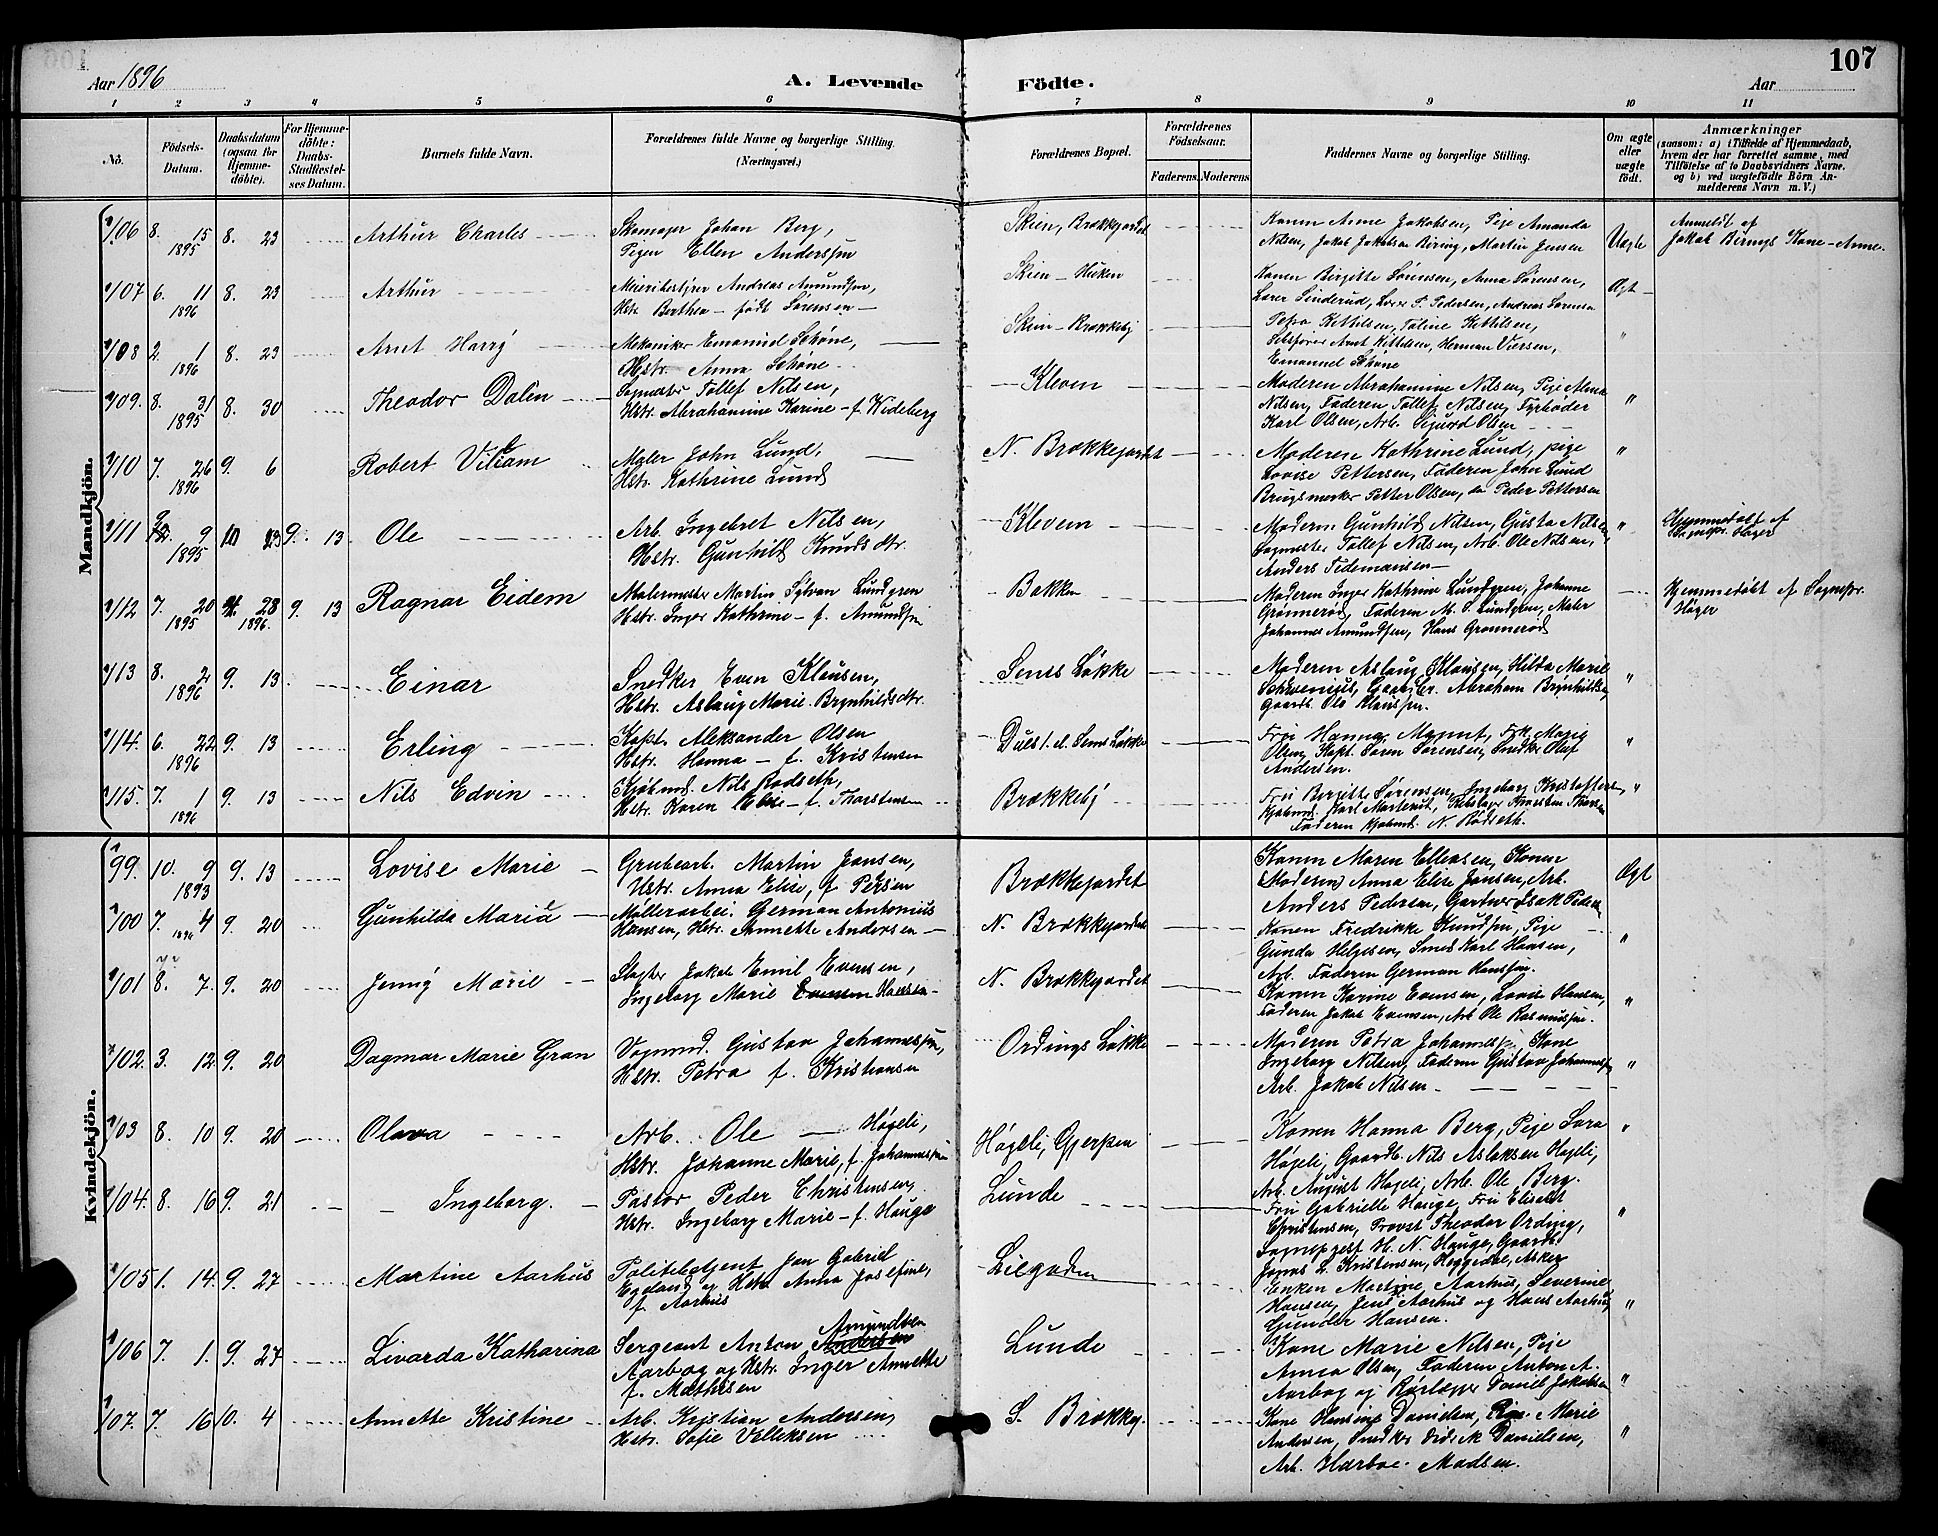 Aar 1896
A. Levende
Födte.
Aar
107
1 2 3 4 5 6 7 8 9 10 11
No.
Födsels-Datum.
Daabsdatum (ogsaa for Hjemme-döbte).
For Hjemme-döbte: Daabs-Stadfæstel-ses Datum.
Barnets fulde Navn.
Forældrenes fulde Navne og borgerlige Stilling.
(Næringsvei.)
Forældrenes Bopæl.
Forældrenes Födselsaar.
Faderens. Moderens.
Faddernes Navne og borgerlige Stilling.
Om ægte eller uægte födt.
Anmærkninger
(saasom: a) i Tilfælde af Hjemmedaab,
hvem der har forrettet samme, med
Tilföielse af to Daabsvidners Navne,
og b) ved uægtefödte Börn An-
melderens Navn m. V.)
Mandkjön.
/06 8. 15 1895 8. 23 Arthur Charles
Skomager Johan Berg,
Pigen Ellen Anderssen
Skien, Brækkejordet
Konen Anne Jakobsen, Pige Amanda
Nilsen, Jakob Jakobsen Biring, Martin Jensen
Uægte
Anmeldt af
Jakob Birings Kone - Anne.
/07 6. 11 1896 8. 23 Arthur
Meieribestyrer Andreas Amundsen,
Hstr. Berthea - født Sørensen -
Skien
Konen Birgitte Sørensen, Anna Sørensen,
Lærer Sinderud, Lærer P. Pedersen, Andreas Sørensen
Ægt
/08 2. 1 1896 8. 23 Arnt Harry
Mekaniker Emanuel Schöne,
Hstr. Anna Schöne
Skien - Brækkeby
Petra Kittilsen, Taline Kittilsen,
Arnt Kittilsen, Herman Iversen,
Emanuel Schöne
"
/09. 8. 31 1895 8. 30 Theodor Dalen
Sagmester Tollef Nilsen,
Hstr. Abrahamine Karine - f. Wideberg
Kleven
Moderen Abrahamine Nilsen, Pige
Nilsen, Faderen Tollef Nilsen, Fyrbøder
Karl Olsen, Arb. Sigurd Olsen
"
/10 7. 26 1896 9. 6 Robert Viliam
Maler John Lund,
Hstr. Kathrine Lund
N. Brækkejordet
Moderen Kathrine Lund, pige
Lovise Pettersen, Faderen John Lund
Petter Olsen, Peder Pettersen
"
/11 9 1895 9. 13 Ole
Arb. Ingebret Nilsen,
Hstr. Gunhild Knudsdtr.
Kleven
Moderen Gunhild Nilsen, Gusta Nilsen,
Sagmester Tollef Nilsen, Arb. Ole Nilsen,
Anders Tidemansen
"
Hjemmedøbt af
Sognepr. Høyer
/12 7. 20 1895 28 1896. 9. 13 Ragnar Eidem
Malermester Martin Sylvan Lundgren
Hstr. Inger Kathrine - f. Amundsen
Bakken
Moderen Inger Kathrine Lundgren, Johanne
Grønnerød, Faderen M. S. Lundgren, Maler
Johannes Amundsen, Hans Grønnerød
Hjemmedøbt af Sognepr.
Høyer
/13 8. 2 1896 9. 13. Einar
Snedker Even Klausen,
Hstr. Aslaug Marie Brynhildsdtr.
Sems Løkke
Moderen Aslaug Klausen, Hilda Marie
Abraham Brynhildsen
Gaardb. Ole Klausen.
"
/14. 6. 22 1896 9. 13 Erling
Kapt. Aleksander Olsen
Hstr. Hanna - f. Kristensen
Dues l. el. Sems Løkke
Fru Hanna Magnut, Frk. Marie
Olsen, Kapt. Søren Sørensen, Snedker Olaf
Andersen.
"
/15. 7. 1 1896 9. 13 Nils Edvin
Kjøbmd. Nils Rødseth,
Hstr. Karen Elise - f. Thorstensen
Brækkeby
Fru Birgitte Sørensen, Ingeborg Kristoffersen,
Kjøbmd. Karl
Faderen Kjøbmd. N. Rødseth.
"
Kvindekjön.
99. 10. 9 1893 9. 13 Lovise Marie
Grubearb. Martin Jansen,
Hstr. Anna Elise, f. Persen
Brækkejordet
Konen Maren Elleasen, Konen
(Moderen) Anna Elise Jansen, Arb.
Anders Pedersen, Gartner Isak Pedersen
Ægt
/00 7. 4 1896 9. 20 Gunhilda Maria
Møllerarbei. German Antonius
Hansen, Hstr. Annette Andersen
N. Brækkejordet
Konen Fredrikke Knudsen, Pige
Gunda Helgesen, Smed Karl Hansen,
Arb. Faderen German Hanssen.
"
/01 8. 7. 9. 20 Jenny Marie
Slagter Jakob Emil Evensen,
Ingeborg Marie Evensen Hansen
N. Brækkejordet
Konen Karine Evensen, Lovise Hansen,
Faderen Jakob Evensen, Arb. Ole Rasmussen.
"
/02. 3. 12. 9. 20 Dagmar Marie Gran
Vognmd. Gustav Johannessen,
Hstr. Petra f. Kristiansen
Ordings Løkke
Moderen Petra Johannessen, Kone
Ingeborg Nilsen, Faderen Gustav Johannessen
Arb. Jakob Nilsen
"
/03 8. 10 9. 20 Olava
Arb. Ole - Høgeli,
Hstr. Johanne Marie, f. Johannessen
Høgeli, Gjerpen
Konen Hanna Berg, Pige Sara
Høgeli, Gaardb. Nils Aslaksen Høgeli,
Arb. August Høgeli, Arb. Ole Berg.
"
/04. 8. 16 9. 21 Ingeborg.
Pastor Peder Christensen,
Hstr. Ingeborg Marie - f. Hauge
Lunde
Fru Gabrielle Hauge, Fru Elisabt
Christensen, Provst Theodor Ording,
Sogneprest H. N. Hauge, Gaardb.
Jonas L. Kristensen, Heggedal, Asker
"
/05 1. 14. 9. 27 Martine Aarhus
Politibetjent Jan Gabriel
Egeland og Hstr. Anna Josefine,
f. Aarhus
Liegaden
Enken Martine Aarhus, Severine
Hansen, Jens Aarhus og Hans Aarhus,
Gunder Hansen.
"
/06 7. 1. 9. 27 Livarda Katharina
Sergeant Anton Andersen Amundsen
Aarbog og Hstr. Inger Annette
f. Mathisen
Lunde
Kone Marie Nilsen, Pige
Anna Olsen, Faderen Anton A.
Aarbog og Rørlægger Daniel Jakobsen
"
/07. 7. 16 10. 4 Annette Kristine
Arb. Kristian Andersen,
Hstr. Sofie Velleksen
S. Brækkej.
Kone Hansine Danielsen, Pige Marie
Andersen, Snedker Didrik Danielsen,
Arb. Harboe Madsen.
"